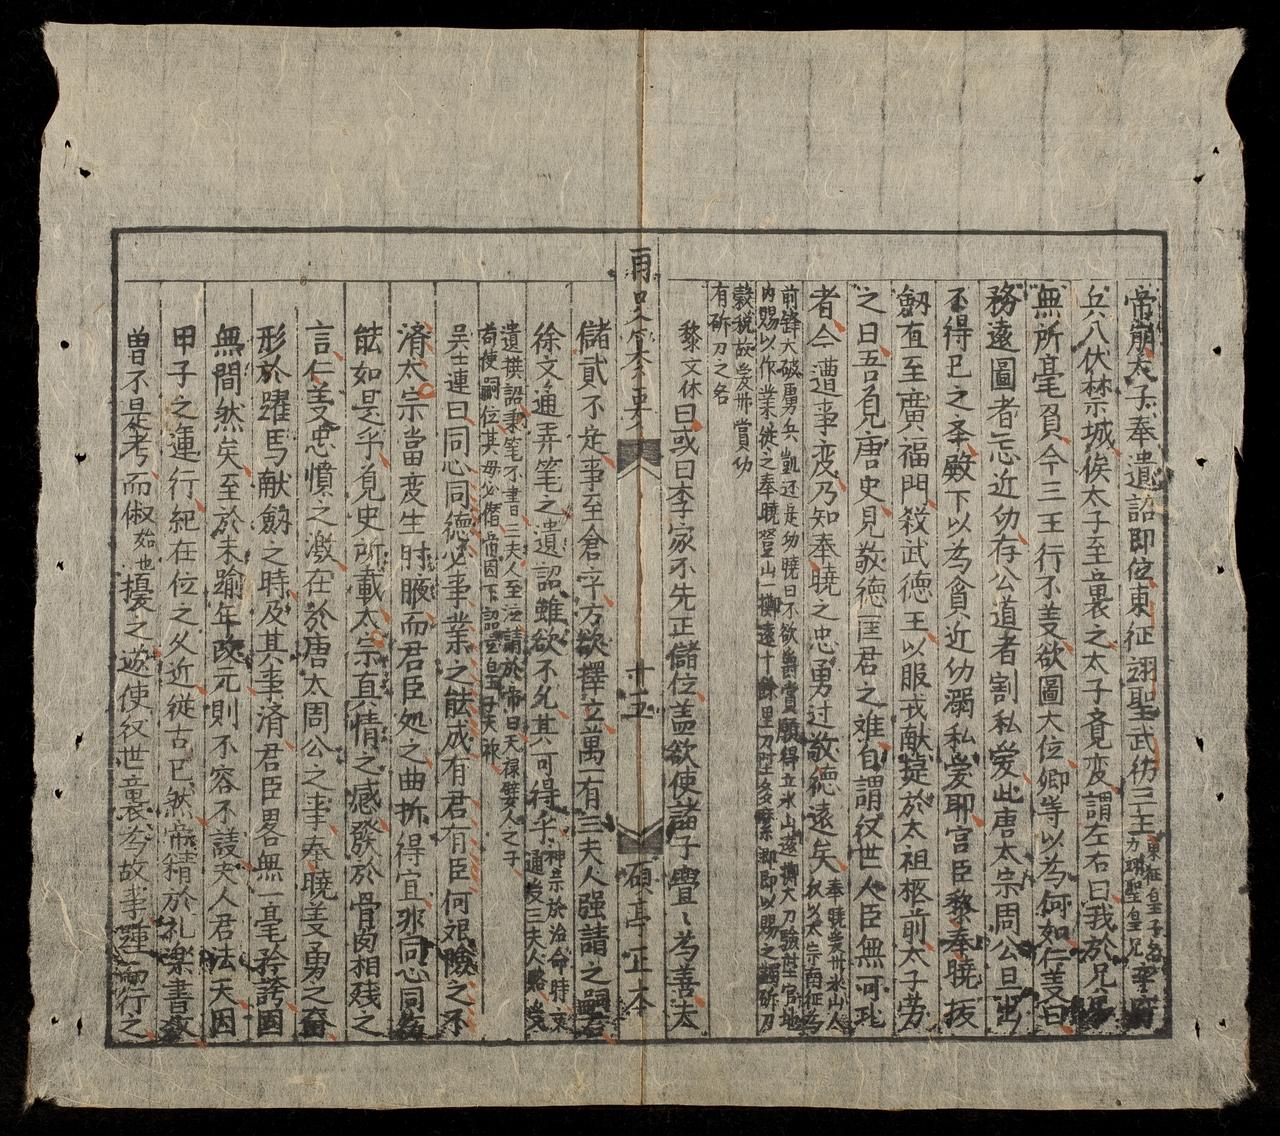 帝崩太子奉遺詔即位東征翊聖武德三王東征皇子名力翊聖皇兄
兵入伏禁城俟太子至襲之太子覚変謂左右曰我於兄弟
無所毫負今三王行不義欲圖大位卿等以為何如仁義曰
務遠圖者忘近功存公道者割私爱此唐太宗周公旦出
不得已之圣殿下以為貪近功溺私爱耶官臣黎奉曉拔
劔直至廣福門殺武德王以服戎献捷於太祖柩前太子劳
之曰吾覓唐史見敬德匡君之难自謂後世人臣無可比
者今遭事変乃知奉曉之忠勇过敬德遠矣奉曉爱州氷山人後以太宗南征為
前鋒大破虜兵凱还定功曉曰不欲爵賞願得立氷山遠擲大刀驗於官地
内賜以作業従之奉曉登山一擲遠十餘里刀於多縻郷即以賜之蠲斫刀
穀税故爱州賞功
有斫刀之名
黎文休曰或曰李家不先正儲位盖欲使諸子亹〻為善夫
冊史会大全要
十五
碩亭正本
儲貳不定事至倉卒方欲擇立萬一有三夫人强請之嗣
徐文通弄笔之遺詔雖欲不允其可得乎神宗於治命時京
遺撰詔秉笔不書三夫人至泣請於帝曰天禄嬖人之子
苟使嗣位其母必僭帝因下詔立皇子天祚
吴士連曰同心同德必事業之能成有君有臣何艰險之不
済太宗當变生肘腋而君臣処之曲折得宜非同心同德
能如是乎覓史所載太宗真情之感發於骨肉相残之
言仁義忠憤之激在於唐太周公之事奉曉義勇之奮
形於躍馬献劔之時及其事済君臣畧無一毫矜誇固
無間然矣至於未踰年改元則不容不議夫人君法天因
甲子之運行紀在位之久近従古已然帝精於礼楽書数
曽不是考而俶始也擾之遂使後世襲為故事踵而行之